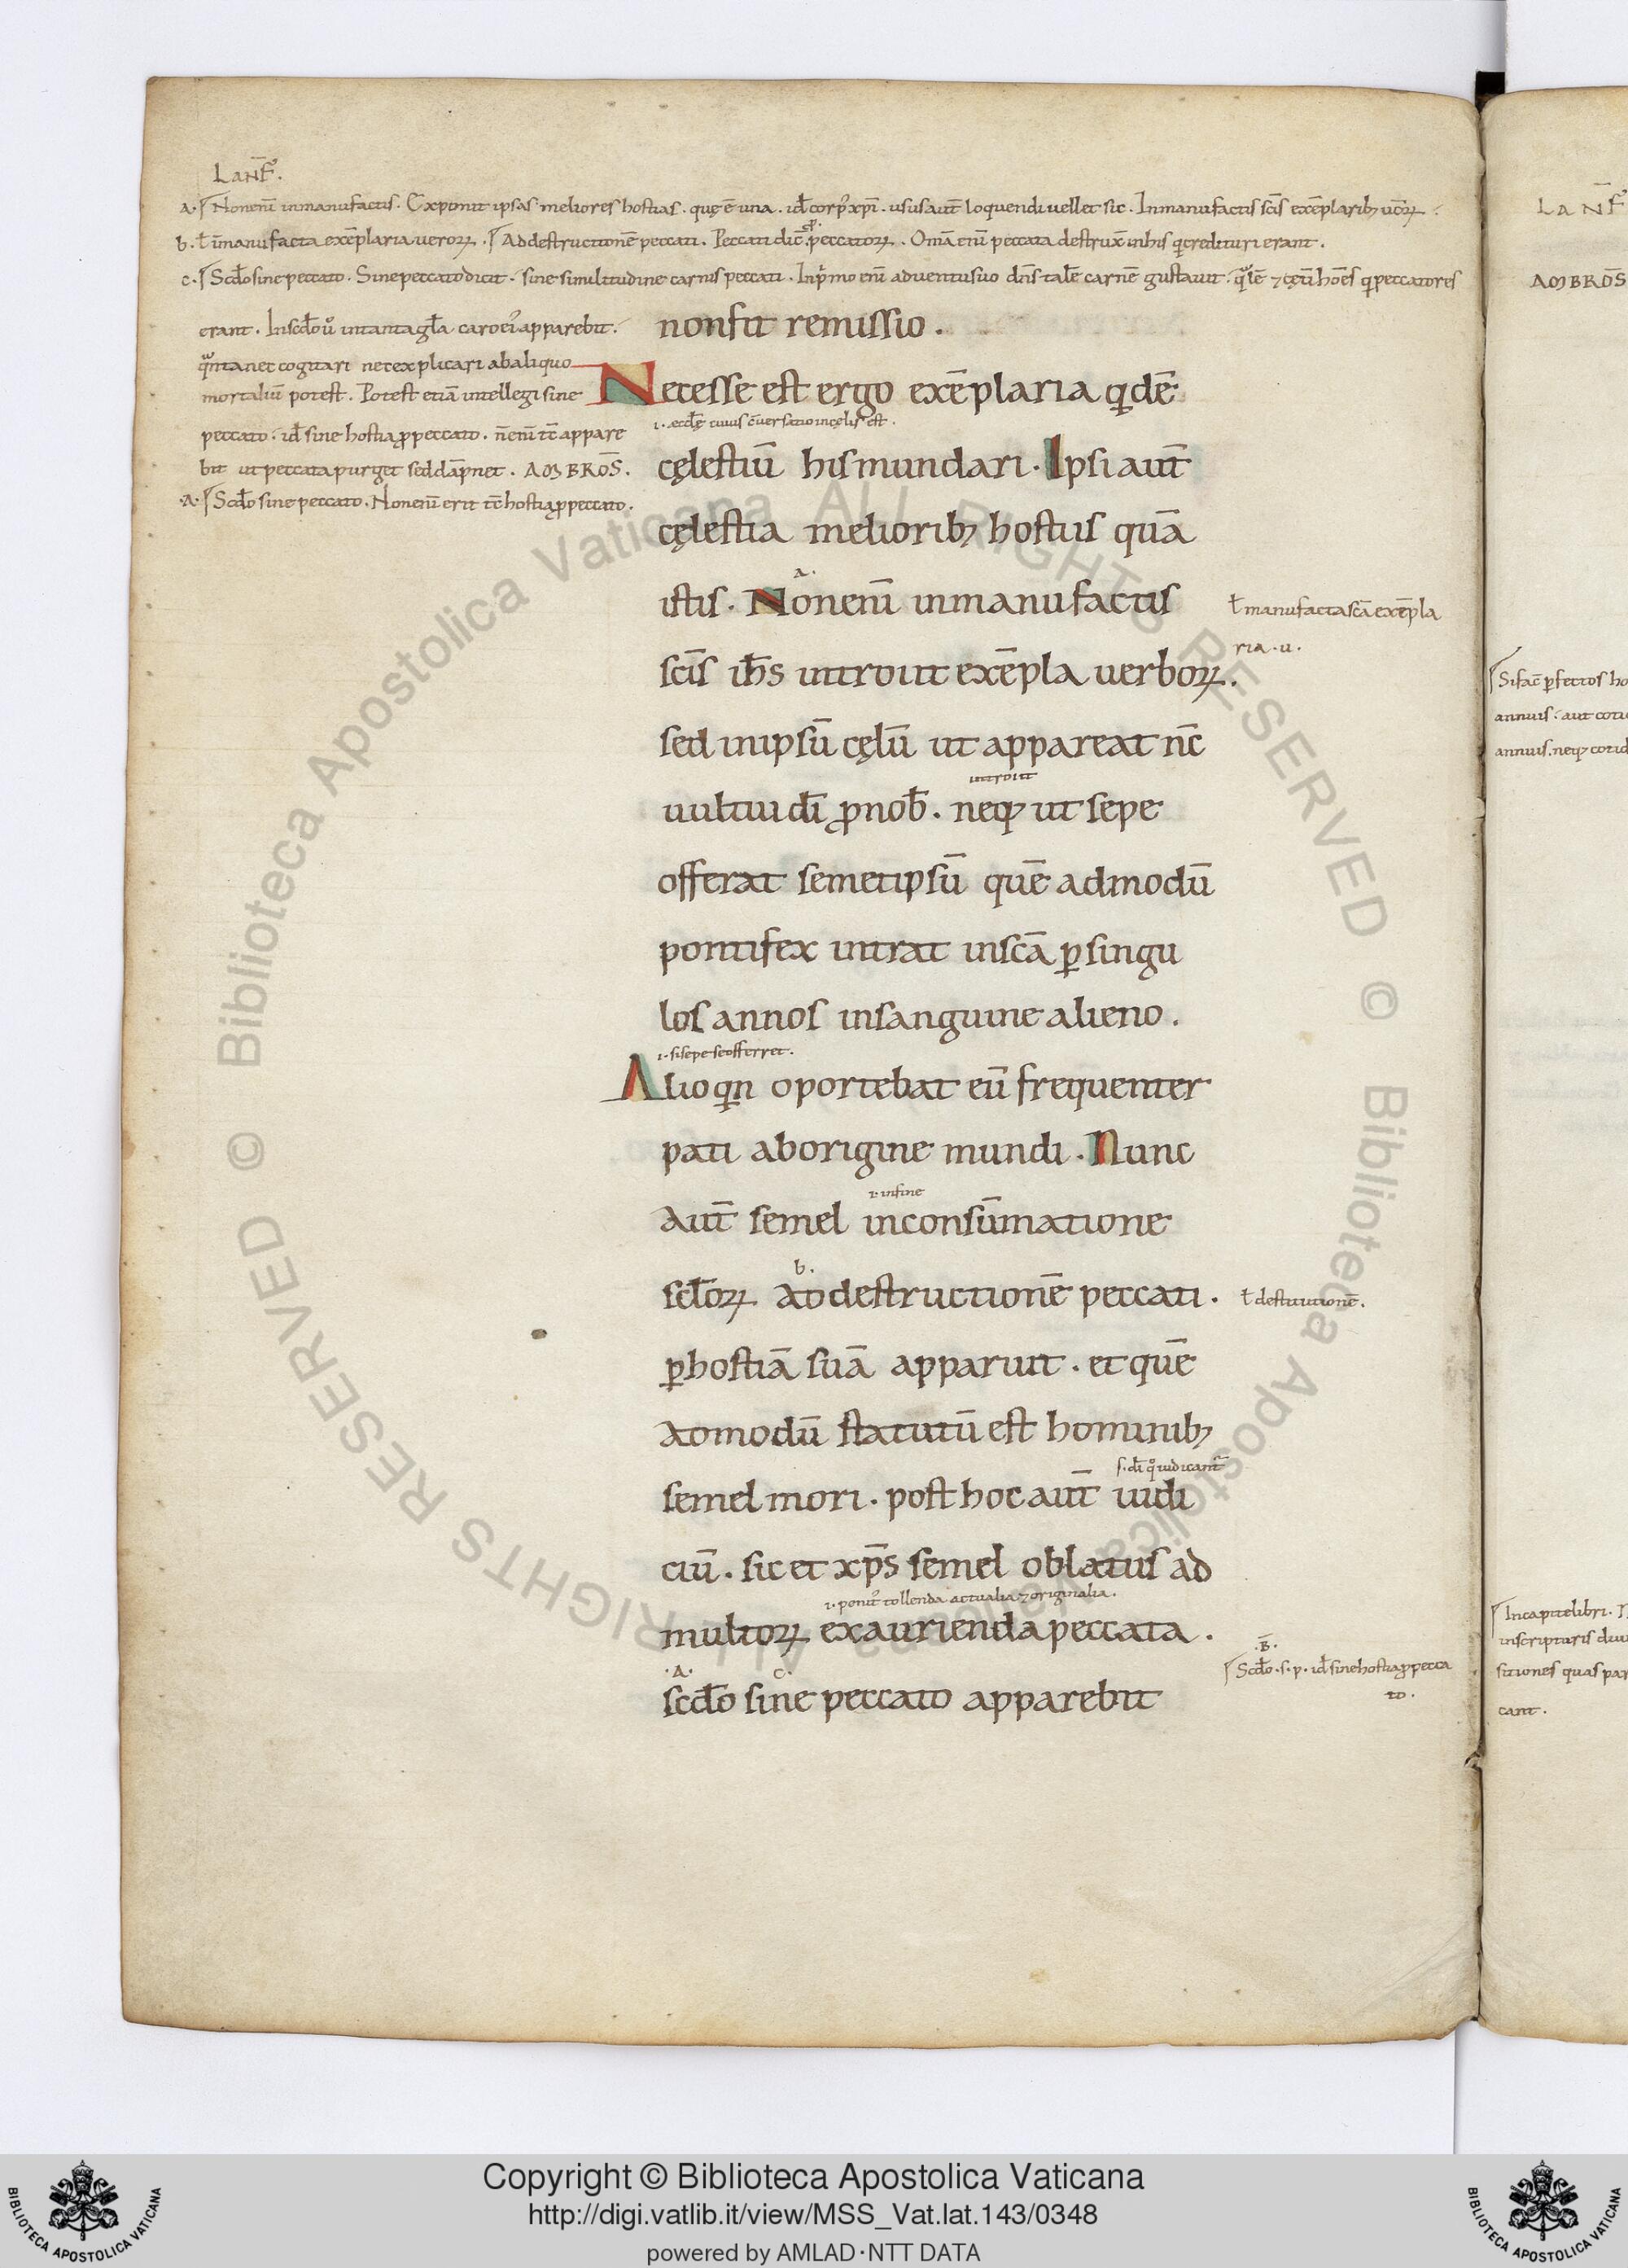 LANF̄.
a. Nonenī inmanufactis. Exponit ipsas meliores hostias. quę ē una. id corp᾽ xpī. usus aut̄ loquendi uellet sic. Inmanufactis sc̄is exēplarib; uerorꝝ.
b. ƚ īmanufacta exēplaria uerorꝝ. Ad destructionē peccati. Peccati dic̄ ꝓ peccatorꝝ. Omīa enī peccata destrux̄ inhis qͥ credituri erant.
c. Scd̄o sine peccato. Sine peccato dicit. sine similitudine carnis peccati. Inp̄mo enī aduentu suo dn̄s talē carnē gustauit. qͣlē ⁊ cęt̄i hoēs qͥ peccatores
erant. Inscd̄o uͦ intanta gl̄a caro ei᾽ apparebit.
qͣnta nec cogitari nec explicari ab aliquo
mortaliū potest. Potest etiā intellegi sine
peccato. id̄ sine hostia ꝓ peccato. n̄ enī tc̄ appare
bit ut peccata purget sed dāpnet. AMBROS̄.
.A. Scd̄o sine peccato. Nonenī erit tc̄ hostia ꝓ peccato.
nonfit remissio.
Necesse est ergo exēplaria qͥdē
.i. eccl̄ę cuius c̄uersatio incęlis est.
cęlestiū his mundari. Ipsi aut̄
cęlestia meliorib; hostiis quā
a.
istis. Nonenī inmanufactis
ƚ manufacta sc̄a exēpla
ria.u.
sc̄is ih̄s introiit exēpla uerborꝝ.
sed inipsū cęlū ut appareat nc̄
introiit
uultui dī ꝓ nob̄. neq; ut sepe
offerat semetipsū quē admodū
pontifex intrat insc̄a ꝑ singu
los annos insanguine alieno.
.i. si sepe se offerret.
Alioqͥn oportebat eū frequenter
pati aborigine mundi. Nunc
.i. infine
aut̄ semel inconsūmatione
b.
scl̄orꝝ ad destructionē peccati.
ƚ destitutionē.
ꝑ hostiā suā apparuit. et quē
admodū statutū est hominib;
s. dī qͦ iudicant᾽
semel mori. post hoc aut̄ iudi
ciū. sic et xp̄s semel oblatus ad
.i. ponit᾽ tollenda actualia ⁊ originalia.
multorꝝ exaurienda peccata.
.B̄.
Scd̄o.s.p. id̄ sine hostia ꝓ pecca
to.
.A. c.
scd̄o sine peccato apparebit
LANF̄
AMBROS̄
Si fac̄ ꝑfectos ho
annuis. aut coti
annuis. neq; cotid
Incapite libri.
inscripturis diu
sitiones quas par
cant.
© Biblioteca Apostolica Vaticana ALL RIGHTS RESERVED © Biblioteca Apostolica Vaticana ALL RIGHTS RESERVED
Copyright © Biblioteca Apostolica Vaticana
http://digi.vatlib.it/view/MSS_Vat.lat.143/0348
powered by AMLAD·NTT DATA
BIBLIOTECA APOSTOLICA VATICANA
BIBLIOTECA APOSTOLICA VATICANA